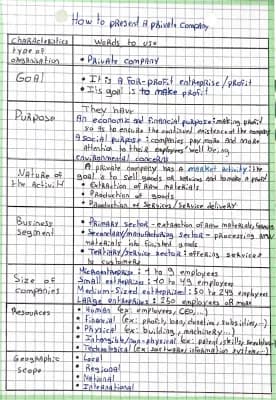 How to present A private Company
characteristics words to use
type of
organisation • Private company
Goal • It is a for-profit enterprise/profit
• It's goal is to make profit
They have
Purpose An economic and financial purpose: making profit
so as to ensure the continued existence of the company
A social purpose: companies pay more and more
attention to their employees' well being
environmental concerns
A private company has a market activity: the
Nature of goal is to sell goods or services and to make a profit
the Activity • Extraction of raw materials
• Production of goods
• Production of services/service delivery
Business • Primary sector - extraction of raw materials, farming
Segment • Secondary/manufacturing sector - processing raw
materials into finished goods
• Tertiary/service sector: offering services
to customers
Microenterprise: 1 to 9 employees
Size of Small enterprise: 10 to 49 employees
companies Medium-sized enterprise: 50 to 249 employees
Large enterprise: 250 employees or more
Resources • Human (ex: employees, CEO,...)
• Financial (ex: profit, loan, subsidies,...)
• Physical (ex: building, machinery...)
• Intangible/non-physical (ex: patent, skills,
• Technological (ex: software, information system,...)
Geographic • Local
scope • Regional
• National
• International